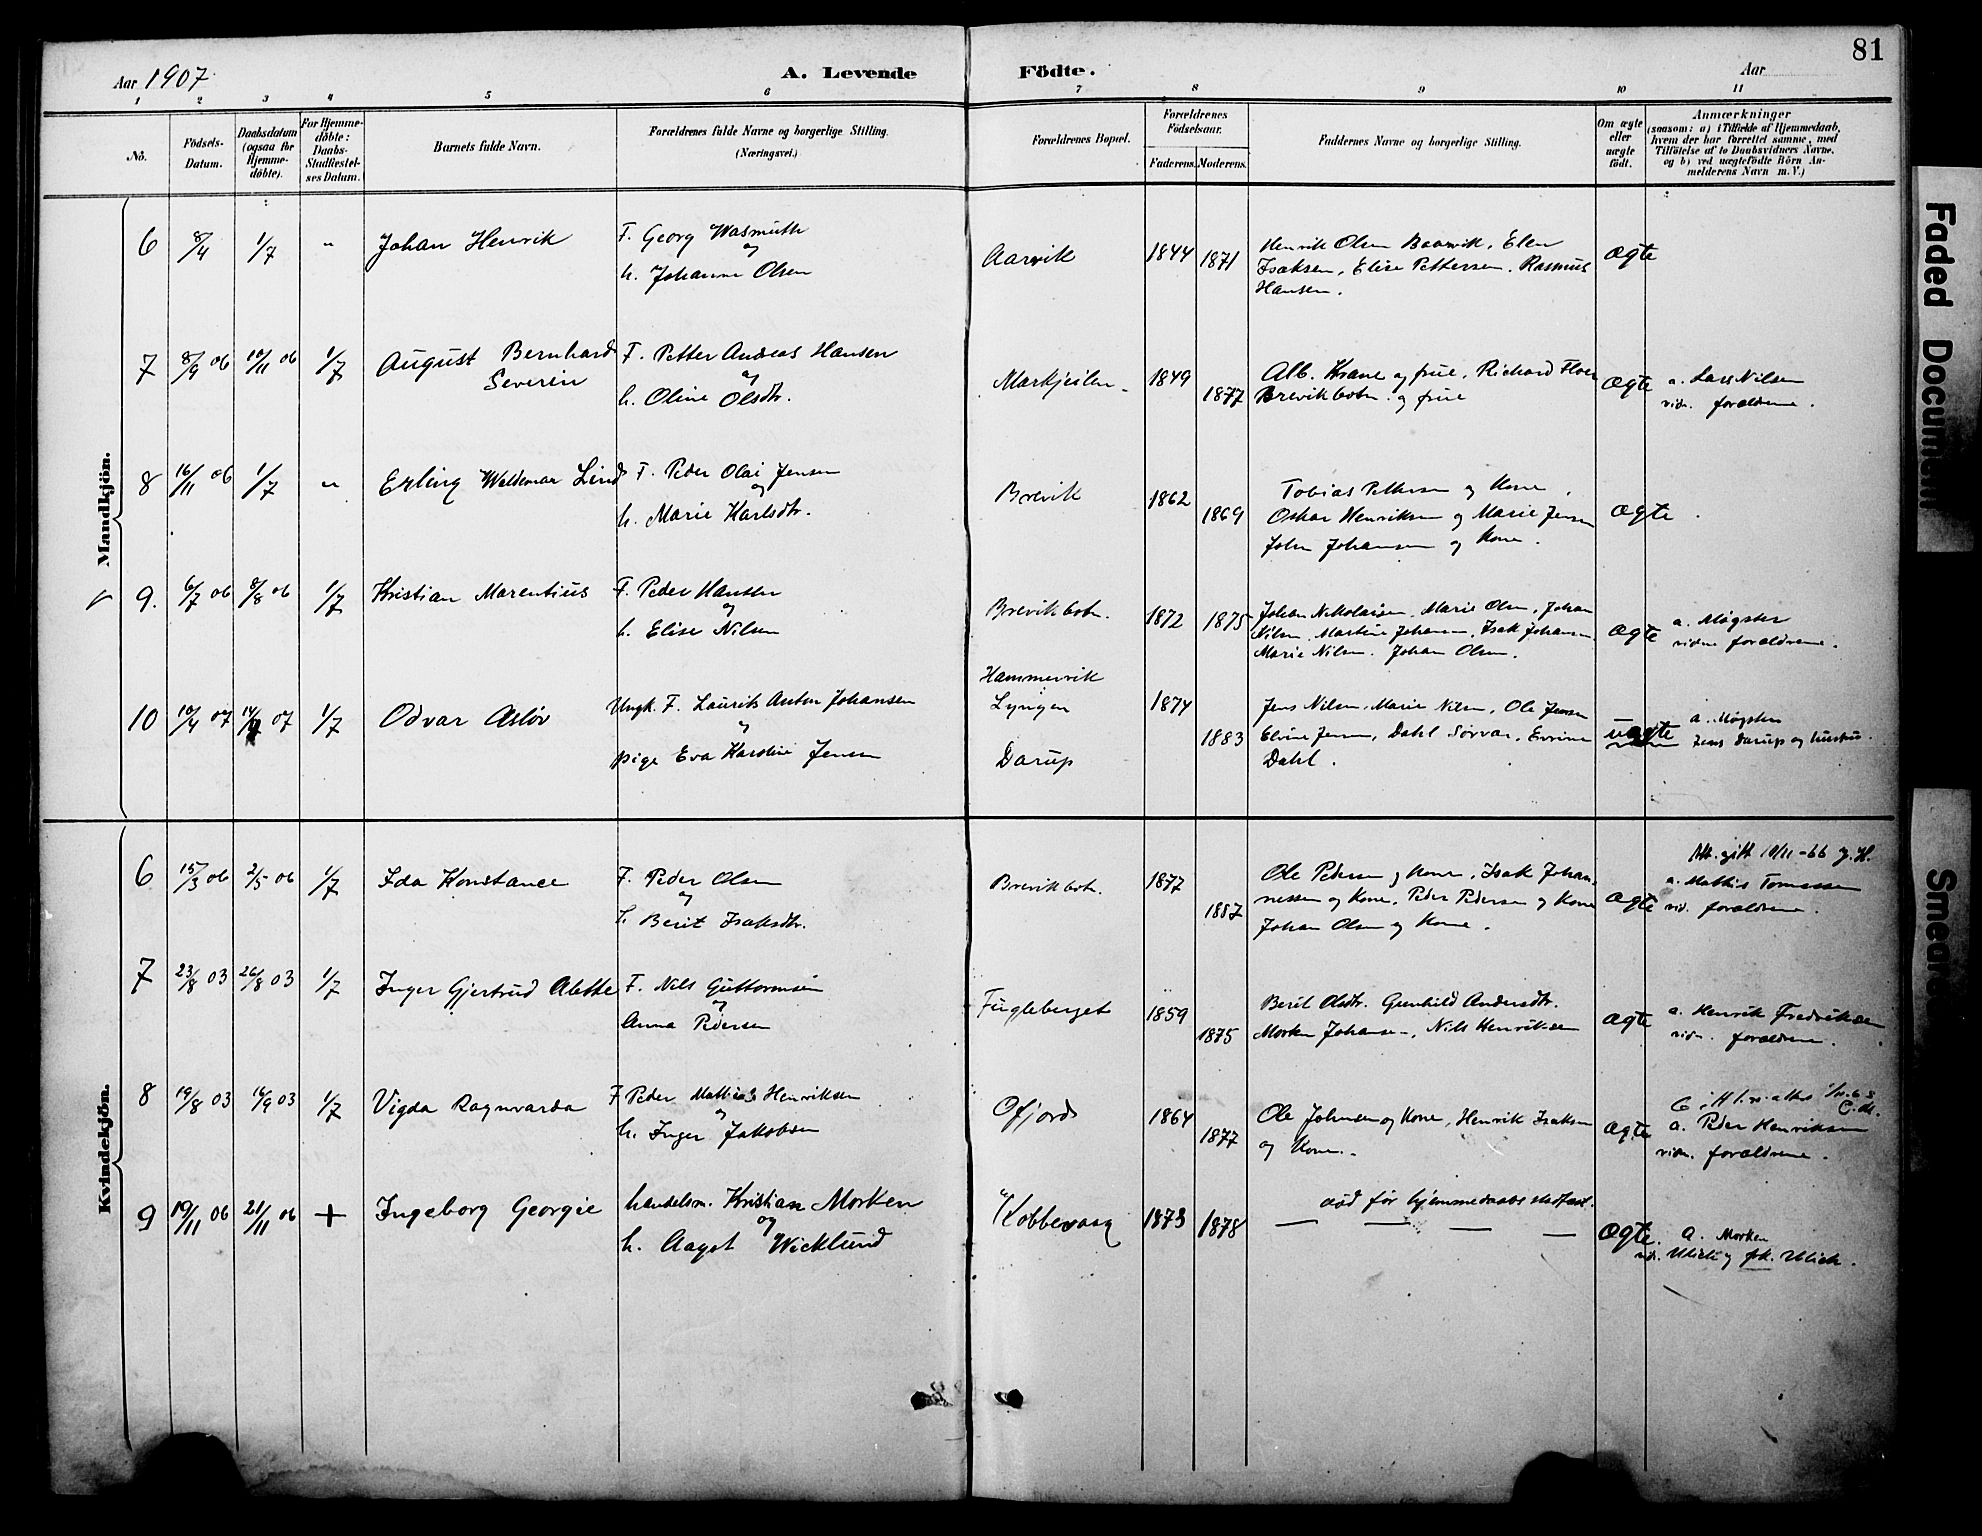 81
Aar 1907. A. Levende Födte. Aar
1 2 3 4 5 6 7 8 9 10 11
No. Födsels-Datum. Daabsdatum (ogsaa for Hjemme-döbte). For Hjemme-döbte: Daabs-Stadfæstel-ses Datum. Barnets fulde Navn. Forældrenes fulde Navne og borgerlige Stilling. (Næringsvei.) Forældrenes Bopæl. Forældrenes Födselsaar. Faderens. Moderens. Faddernes Navne og borgerlige Stilling. Om ægte eller uægte födt. Anmærkninger (saasom: a) i Tilfælde af Hjemmedaab, hvem der har forrettet samme, med Tilföielse af to Daabsvidners Navne, og b) ved uægtefödte Börn An-melderens Navn m. V.)
Mandkjön.
6 8/4 1/7 " Johan Henrik F. Georg Wasmuth
og
h. Johanne Olsen
Aarvik 1844 1871 Henrik Olsen Baarvik, Elen
Isaksen, Elise Pettersen. Rasmus
Hansen.
ægte
7 8/9 06 10/11 06 1/7 August Bernhard
Severin
F. Petter Andreas Hansen
og
h. Oline Olsdtr.
1849 1877 Alb. Krane og frue, Richard Floer
Brevikbotn. og frue
ægte a. Lars Nilsen
vidn. forældrene.
8 16/11 06 1/7 " Erling Waldemar Lind F. Peder Olai Jensen
og
h. Marie Karlsdtr.
Brevik 1862 1869 Tobias Pettersen og Kone,
Oskar Henriksen og Marie Jensen
John Johansen og Kone.
ægte.
9. 6/7 06 8/8 06 1/7 Kristian Marentius F. Peder Hansen
og
h. Elise Nilsen
Brevikbotn. 1872 1875 Johan Nikolaisen, Marie Olsen, Johan
Nilsen, Martine Johansen, Isak Johansen
Marie Nilsen. Johan Olsen.
ægte a. Møgster
vidne forældrene.
10 10/4 07 07 1/7 Odvar Asløv Ungk. F. Laurits Anton Johansen
og
pige Eva Karoline Jensen
Hammervik
Lyngen
Darup
1874 1883 Jens Nilsen, Marie Nilsen, Ole Jensen
Eline Jensen, Dahl Sørvær, Evrine
Dahl.
uægte a. Møgster
Jens Darup og hustru.
Kvindekjön.
6 15/3 06 2/5 06 1/7 Ida Konstance F. Peder Olsen
og
h. Berit Isaksdtr.
Brevikbotn. 1877 1887 Ole Pedersen og Kone, Isak Johan-
nessen og Kone, Peder Pedersen og Kone
Johan Olsen og Kone.
ægte Att. gitt 10/11-66
a. Mathis Tomassen
vid. forældrene.
7 23/8 03 26/8 03 1/7 Inger Gjertrud Alette F. Nils Guttormsen
og
Anna Pedersen
Fugleberget 1859 1875 Berit Olsdtr. Gunhild Andersdtr.
Morten Johansen, Nils Henriksen
ægte a. Henrik Fredriksen
vidn. forældrene.
8 19/8 03 16/9 03 1/7 Vigda Ragnvarda F Peder Mathias Henriksen
og
h. Inger Jakobsen
Ofjord 1864 1877 Ole Johnsen og Kone, Henrik Isaksen
og Kone.
ægte a. Peder Henriksen
vidn. forældrene.
9 19/11 06 21/11 06 + Ingeborg Georgie handelsm. Kristian Morken
og
h. Aagot Wicklund
Kobbevaag 1873 1878 død før hjemmedaabs stadfæst.
ægte. a. Morken
vidn. Ulich og frk. Ulich.
Faded Document
Smeared